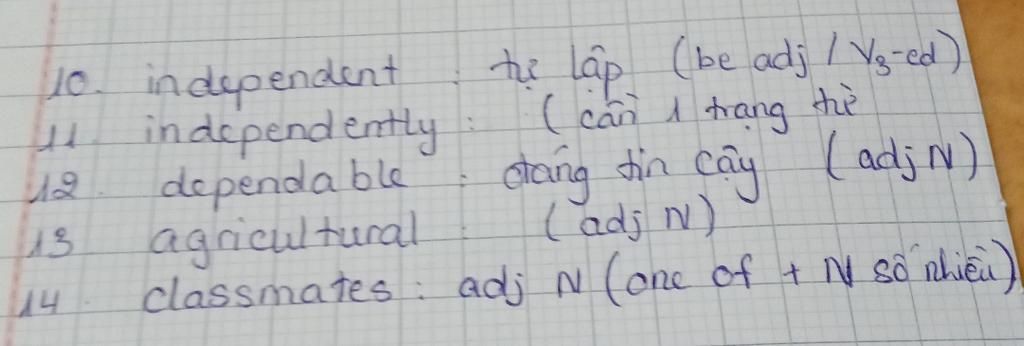 10. independent : tự lập (be adj / V3-ed)
11. independently : (cần 1 trạng từ
12. dependable : đáng tin cậy (adj N)
13 agricultural : (adj N)
14. classmates : adj N (one of + N số nhiều)